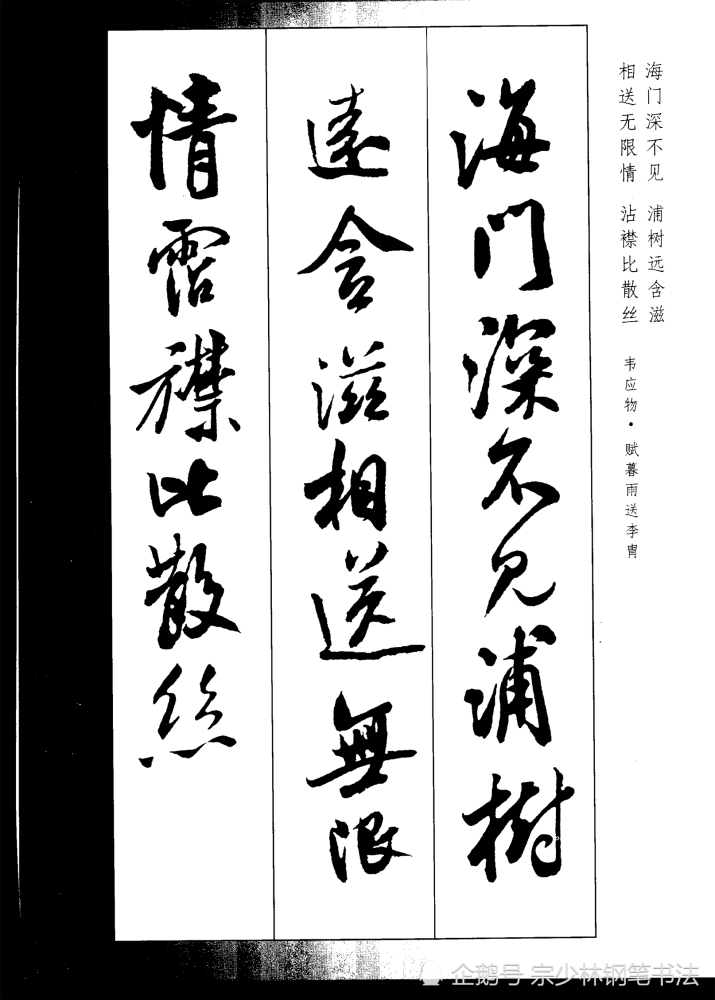 海门深不见 浦树远含滋
相送无限情 沾襟比散丝
韦应物·赋暮雨送李胄
海門深不見浦樹
遠含滋相送無限
情霑襟比散絲
企鹅号 宗少林钢笔书法